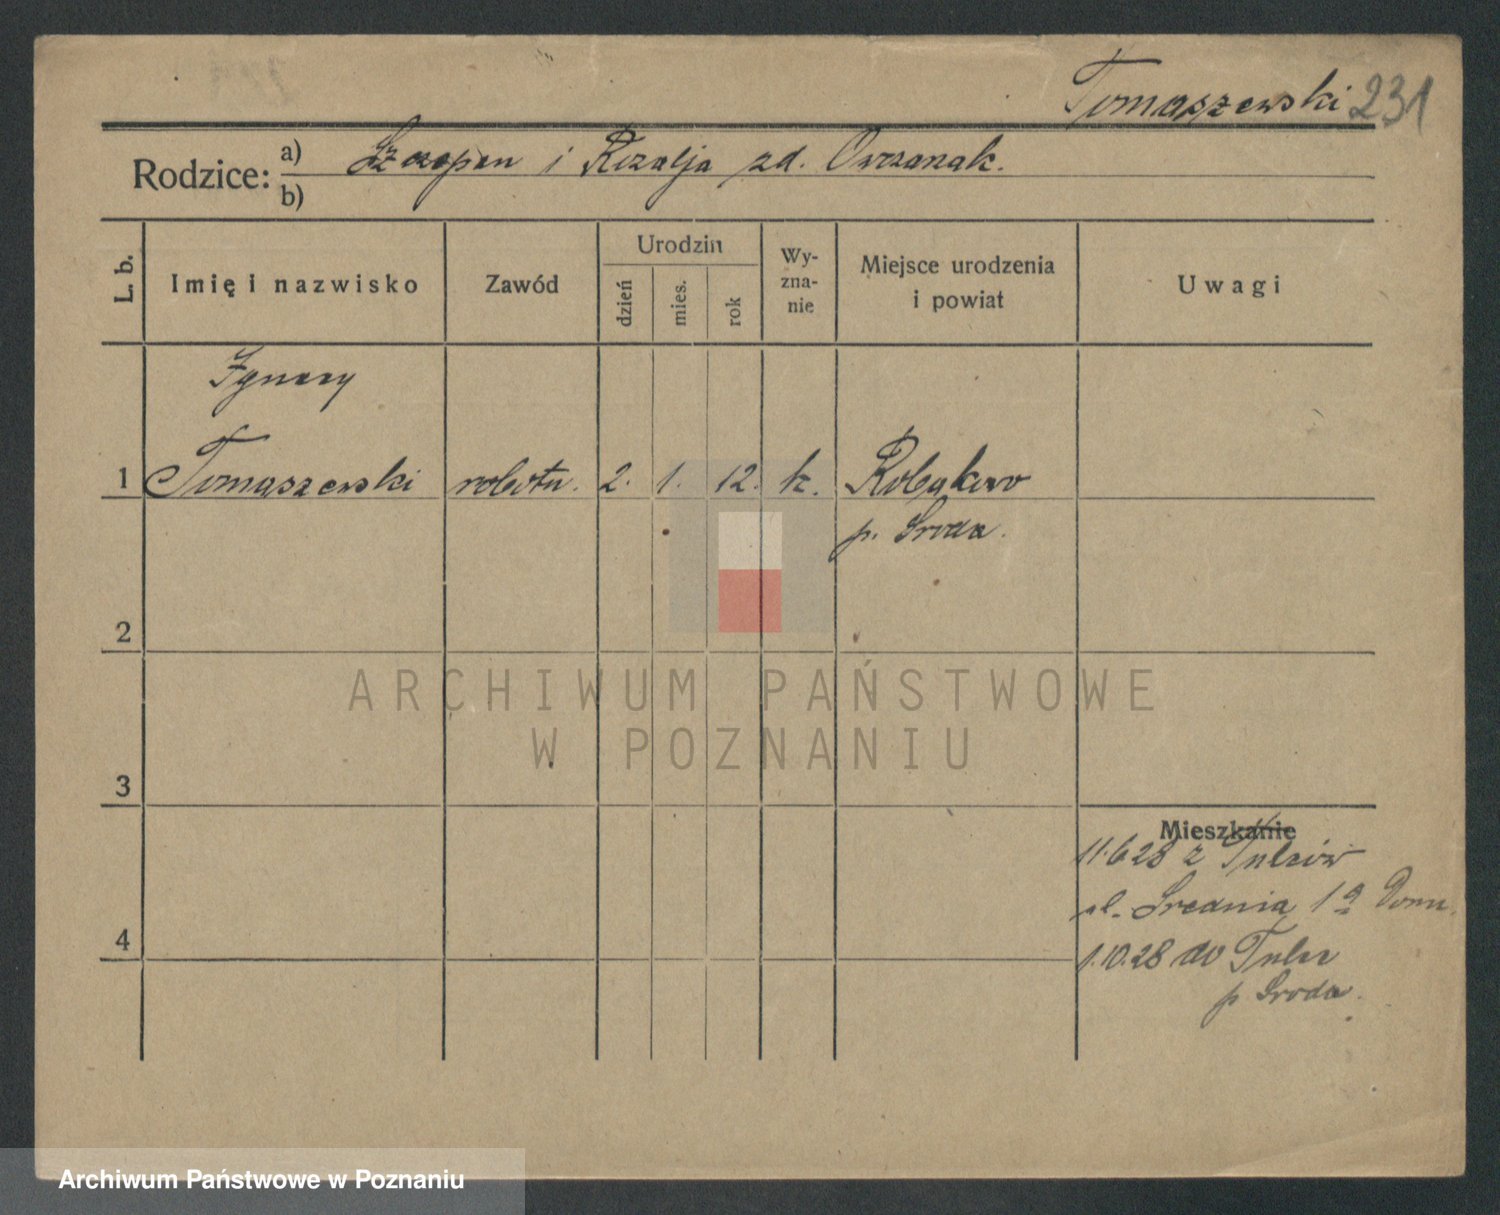 Tomaszewski 231
Rodzice: a) Szczepan i Rozalja zd. Owczarzak.
b)
L. b. Imię i nazwisko Zawód Urodzin dzień mies. rok Wy-zna-nie Miejsce urodzenia i powiat Uwagi
Ignacy
1 Tomaszewski robotn. 2. 1. 12. k. Robakowo
p. Środa.
2
3
Mieszkanie
11.6.28 z Tulców
ul. Średnia 1a
4 1.10.28 do Tulec
p Środa.
ARCHIWUM PAŃSTWOWE
W POZNANIU
Archiwum Państwowe w Poznaniu